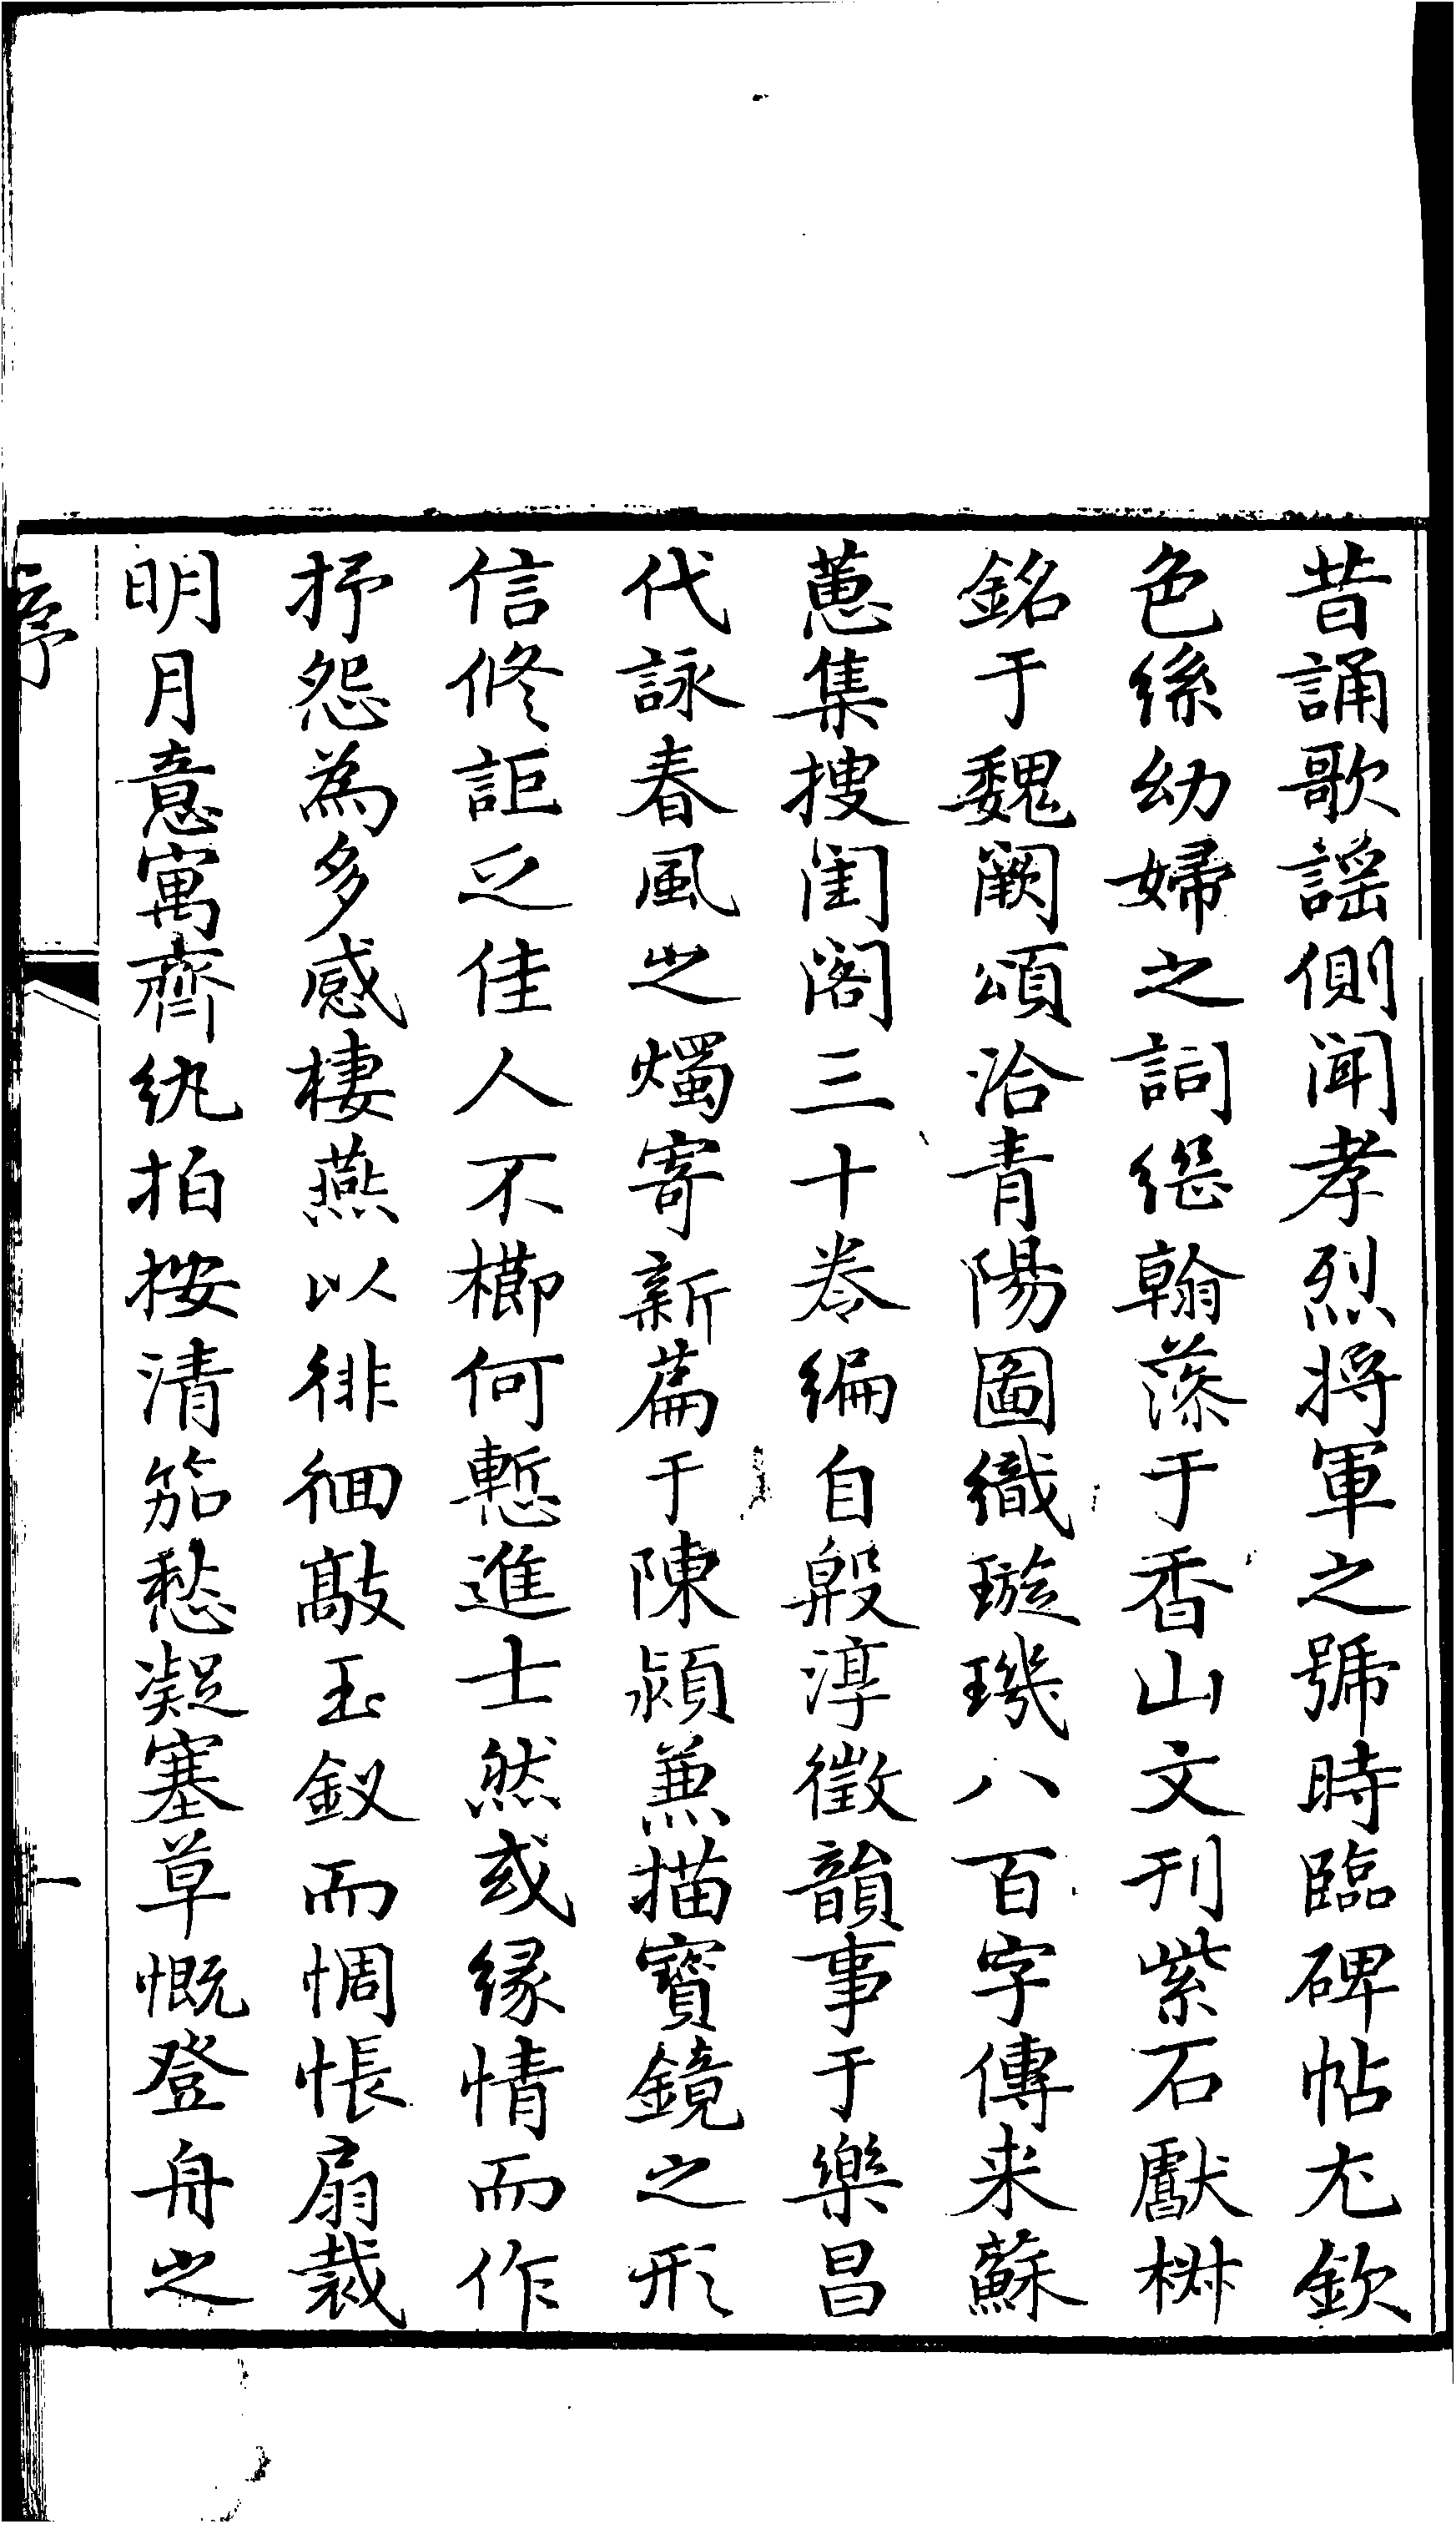 昔誦歌謡側聞孝烈將軍之號時臨碑帖尤欽
色絲幼婦之詞綛翰藻于香山文刊紫石獻椒
銘于魏闕頌洽青陽圖織璇璣八百字傳来蘇
蕙集搜閨閣三十卷編自殷淳徵韻事于樂昌
代詠春風之燭寄新篇于陳潁兼描寶鏡之形
信修詎乏佳人不櫛何慙進士然或緣情而作
抒怨為多感棲燕以徘徊敲玉釵而惆悵扇裁
明月意寓齊紈拍按清笳愁凝塞草慨登舟之
序
一